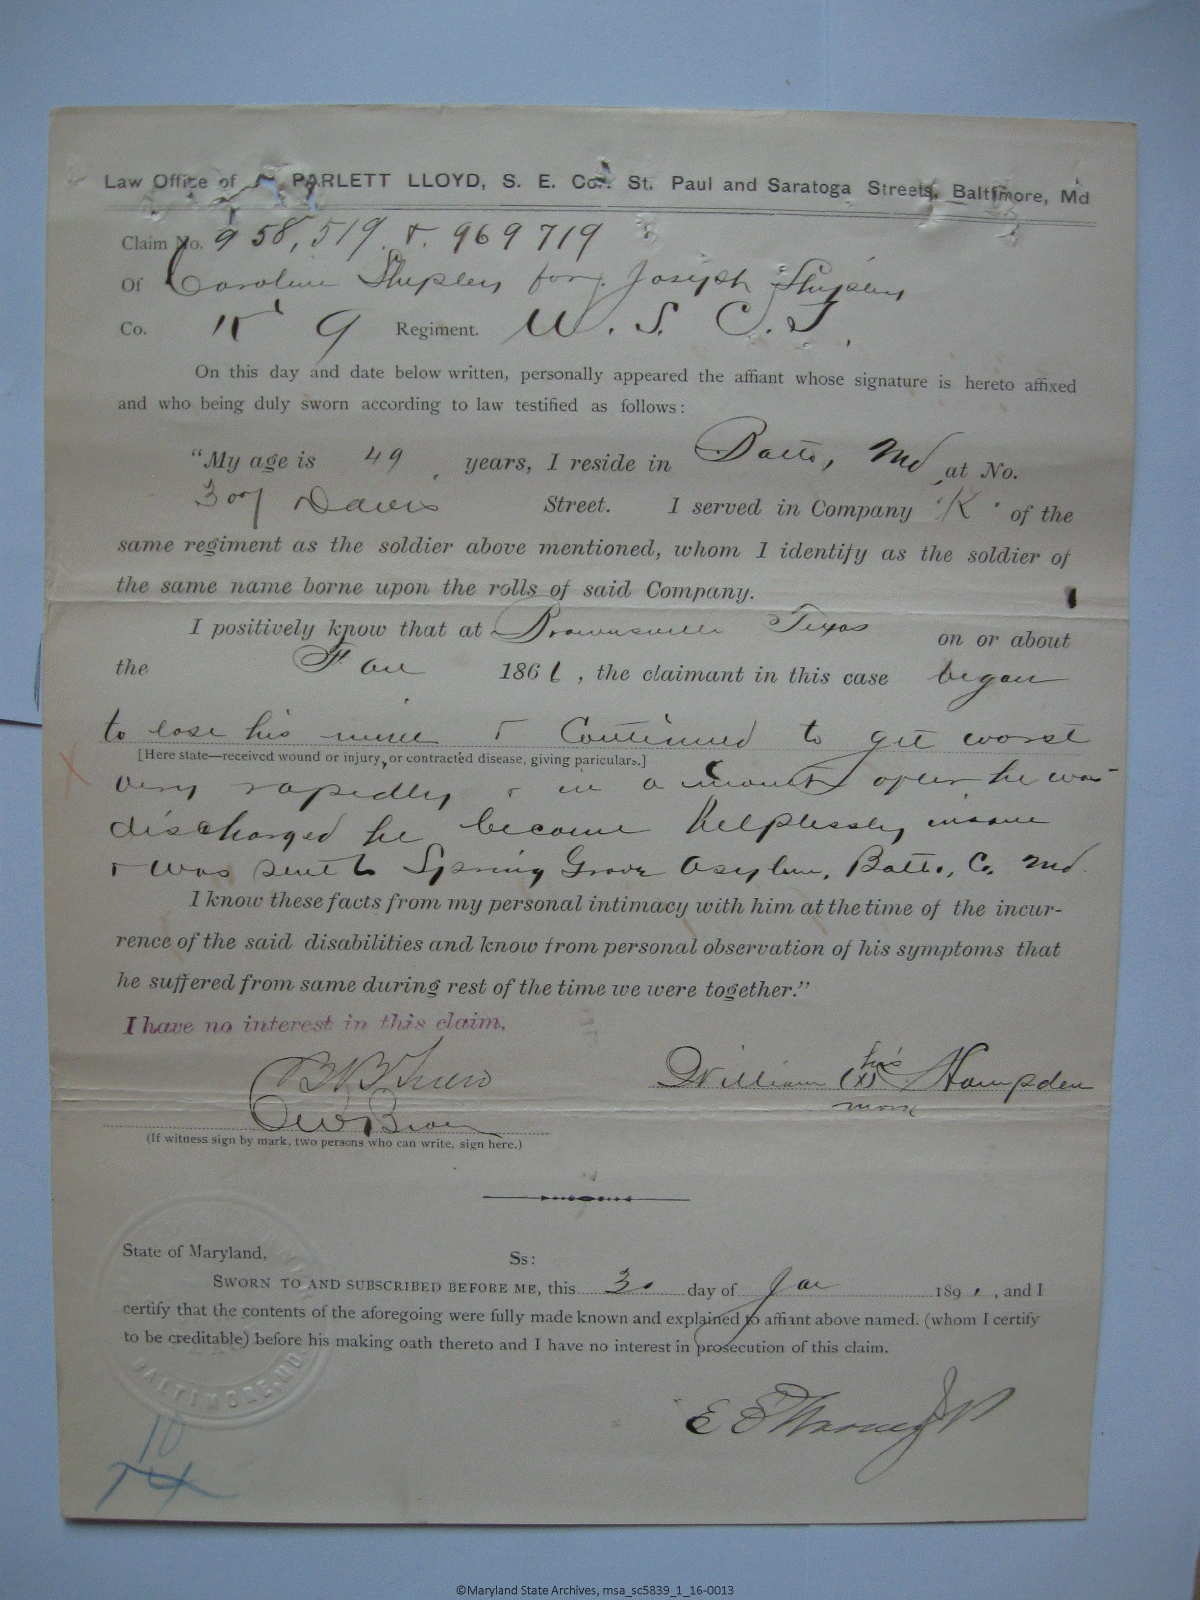 Law Office of PARLETT LLOYD, S. E. Cor. St. Paul and Saratoga Streets, Baltimore, Md
Claim No. 958,519 & 969719
Of Caroline Shipley for Joseph Shipley
Co. K 9 Regiment. U. S. C. T.
On this day and date below written, personally appeared the affiant whose signature is hereto affixed
and who being duly sworn according to law testified as follows:
"My age is 49 years, I reside in Balto, Md at No.
Davis Street. I served in Company "K" of the
same regiment as the soldier above mentioned, whom I identify as the soldier of
the same name borne upon the rolls of said Company.
I positively know that at Brownsville Texas on or about
the Fall 186 , the claimant in this case began
to lose his mind & Continued to get worst
[Here state—received wound or injury, or contracted disease, giving pariculars.]
very rapidly & in a month after he was
discharged he become helplessly insane
& was sent to Spring Grove Asylum, Balto, Co. Md.
I know these facts from my personal intimacy with him at the time of the incur-
rence of the said disabilities and know from personal observation of his symptoms that
he suffered from same during rest of the time we were together."
I have no interest in this claim.
William his (X) mark Hampden
(If witness sign by mark, two persons who can write, sign here.)
State of Maryland, Ss:
SWORN TO AND SUBSCRIBED BEFORE ME, this day of Jan 189 , and I
certify that the contents of the aforegoing were fully made known and explained to affiant above named. (whom I certify
to be creditable) before his making oath thereto and I have no interest in prosecution of this claim.
BALTIMORE, MD.
10
©Maryland State Archives, msa_sc5839_1_16-0013